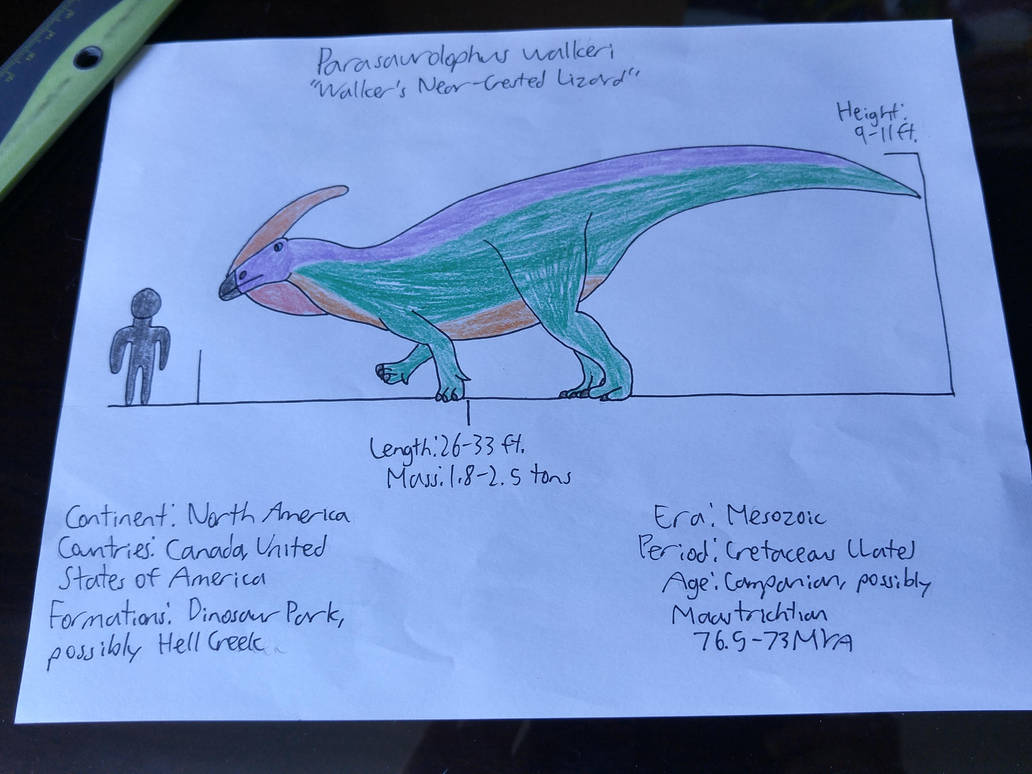 Parasaurolophus walkeri
"Walker's Near-Crested Lizard"
Height:
9-11ft.
Length: 26-33 ft.
Mass: 1.8-2.5 tons
Continent: North America
Countries: Canada, United
States of America
Formations: Dinosaur Park,
possibly Hell Creek
Era: Mesozoic
Period: Cretaceous (Late)
Age: Campanian, possibly
Maastrichtian
76.5-73MYA